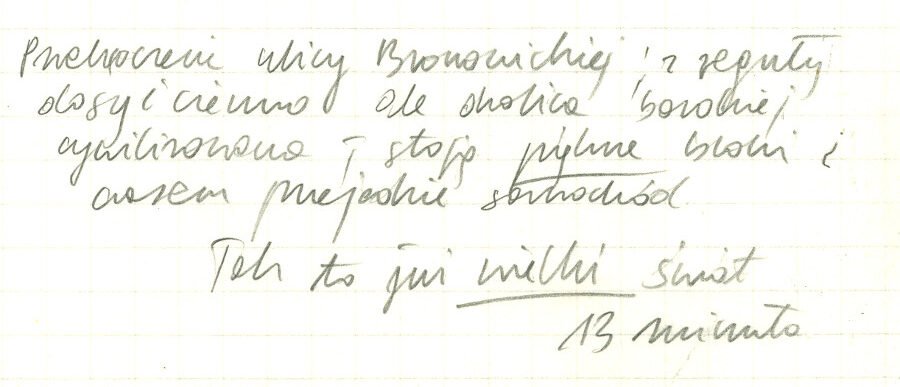 Przekroczenie ulicy Bronowickiej; z reguły
dosyć ciemno ale okolica bardziej
cywilizowana - stoją piękne bloki i
czasem przejedzie samochód
Tak to już wielki świat
13 minuta